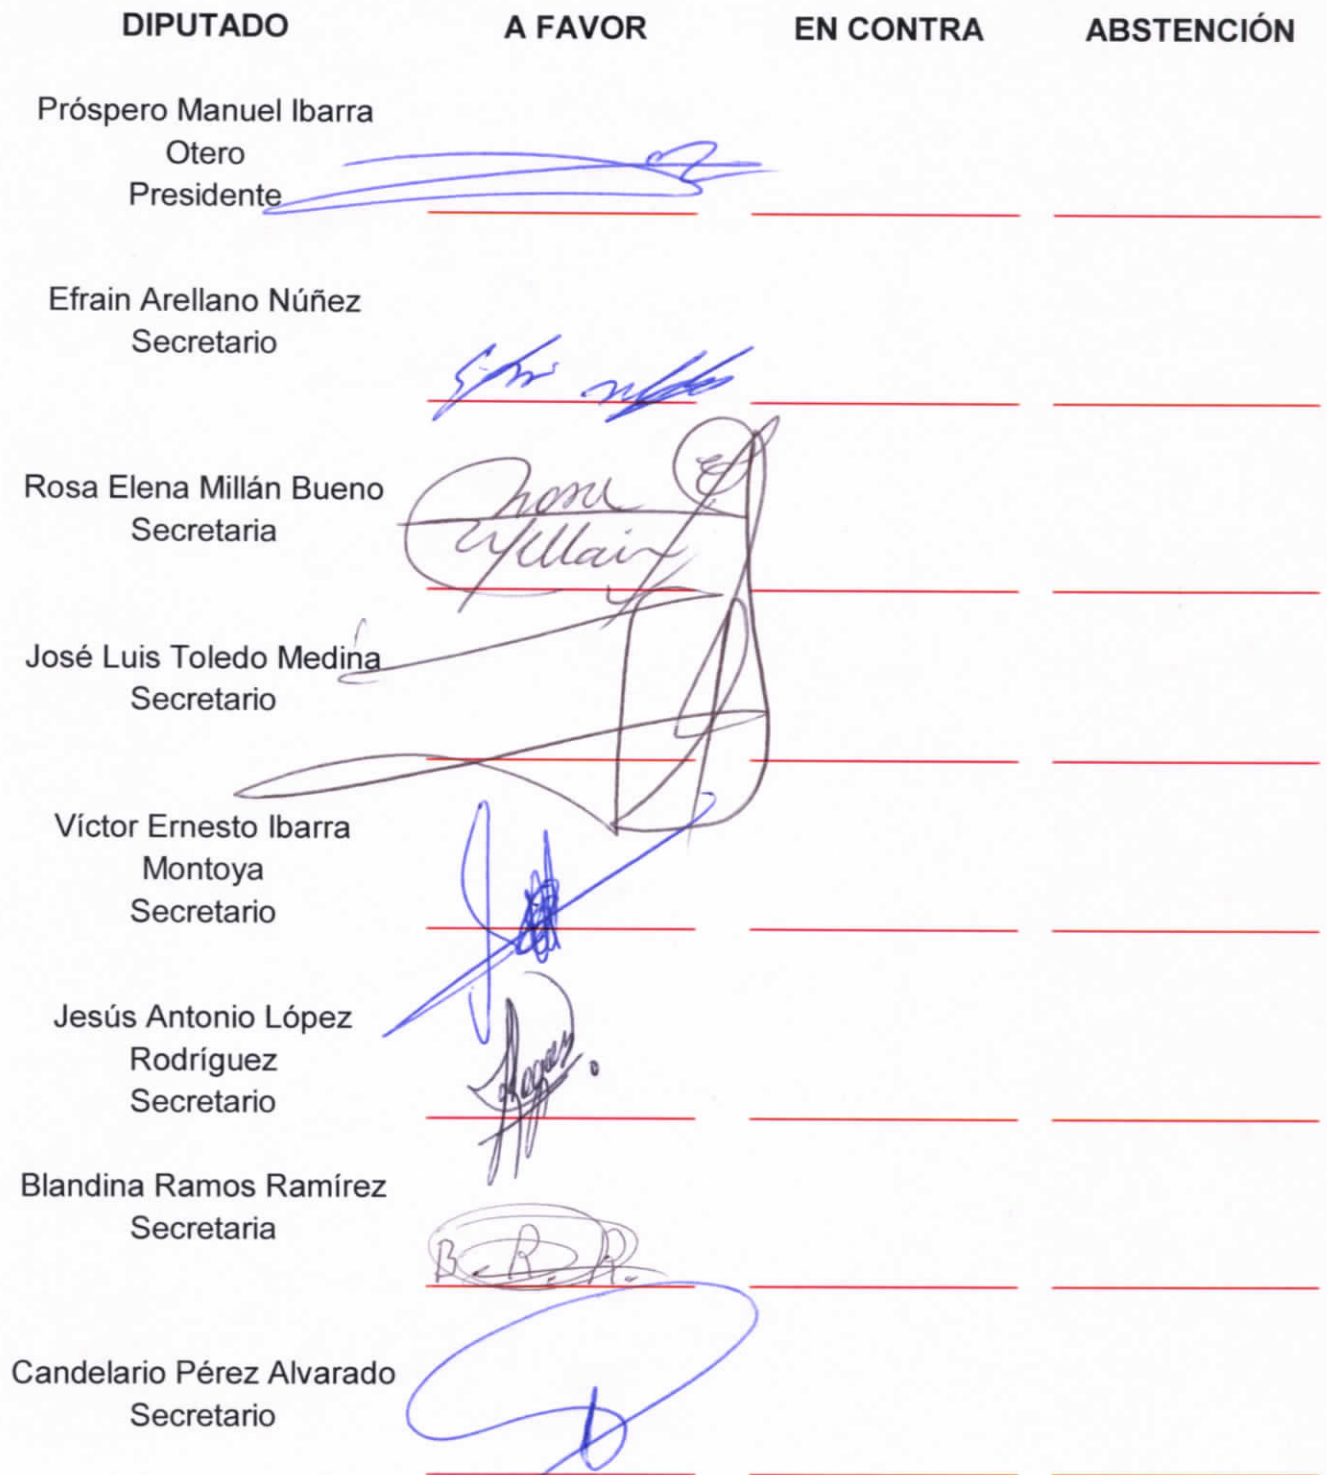 DIPUTADO A FAVOR EN CONTRA ABSTENCIÓN
Próspero Manuel Ibarra
Otero
Presidente
Efrain Arellano Núñez
Secretario
Rosa Elena Millán Bueno
Secretaria
José Luis Toledo Medina
Secretario
Víctor Ernesto Ibarra
Montoya
Secretario
Jesús Antonio López
Rodríguez
Secretario
Blandina Ramos Ramírez
Secretaria
B. R. R.
Candelario Pérez Alvarado
Secretario